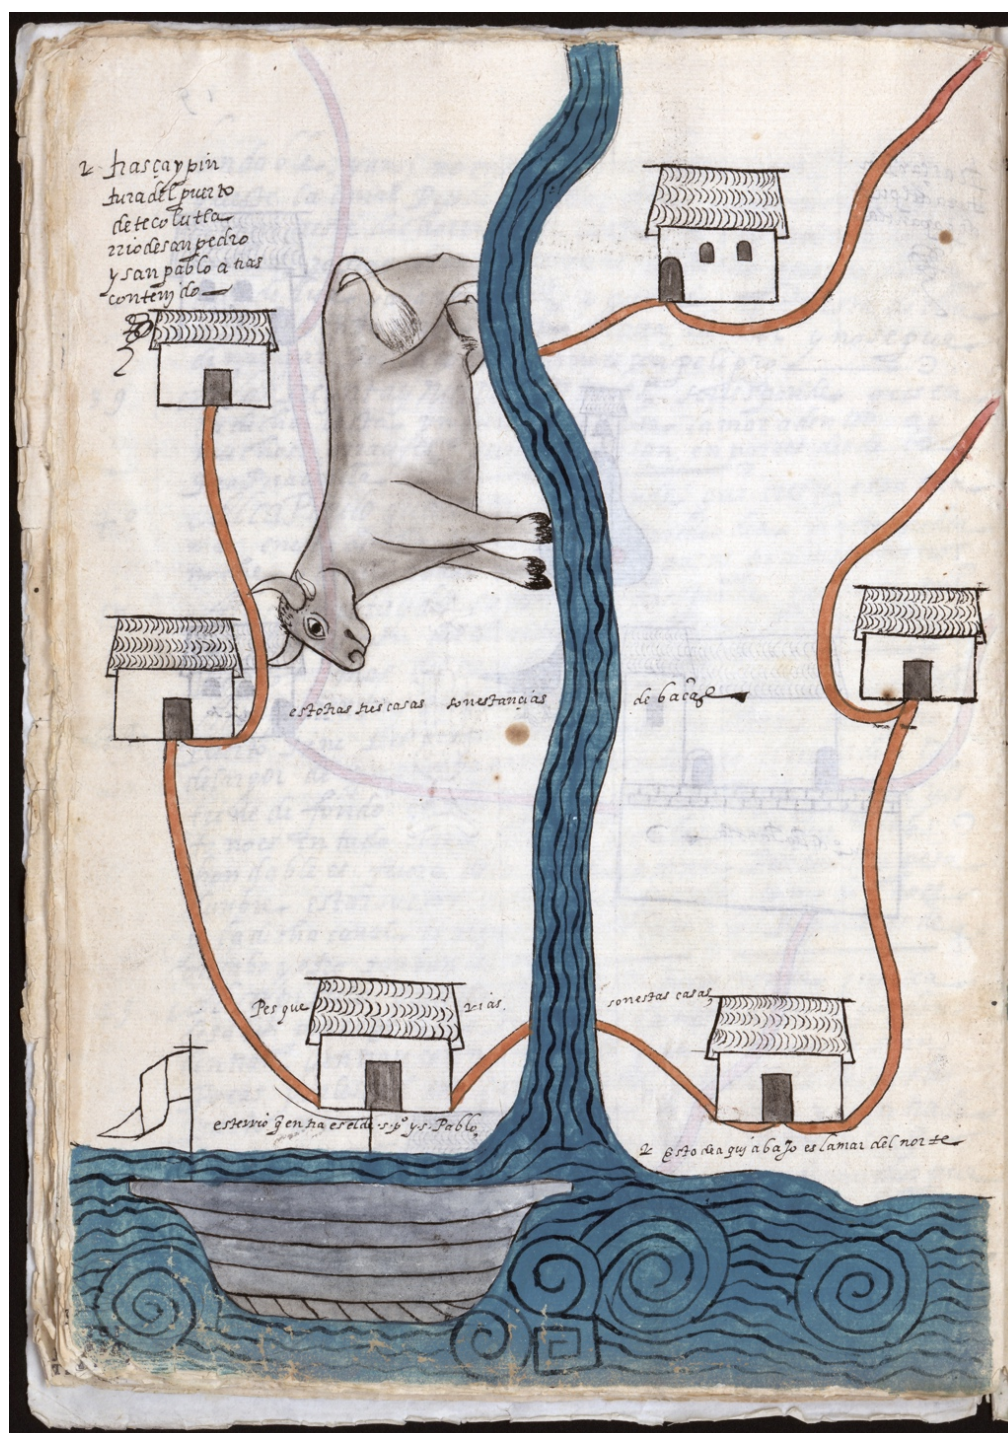 trascay pin
tura del puerto
de tecolutla
rrio de san pedro
y san pablo atras
contenjdo
estotras tres casas son estançias de bacas
Pesque rias son estas casas
este rrio q̄ entra es el de s. pº y s. Pablo
esto de aquj abaJo es la mar del norte